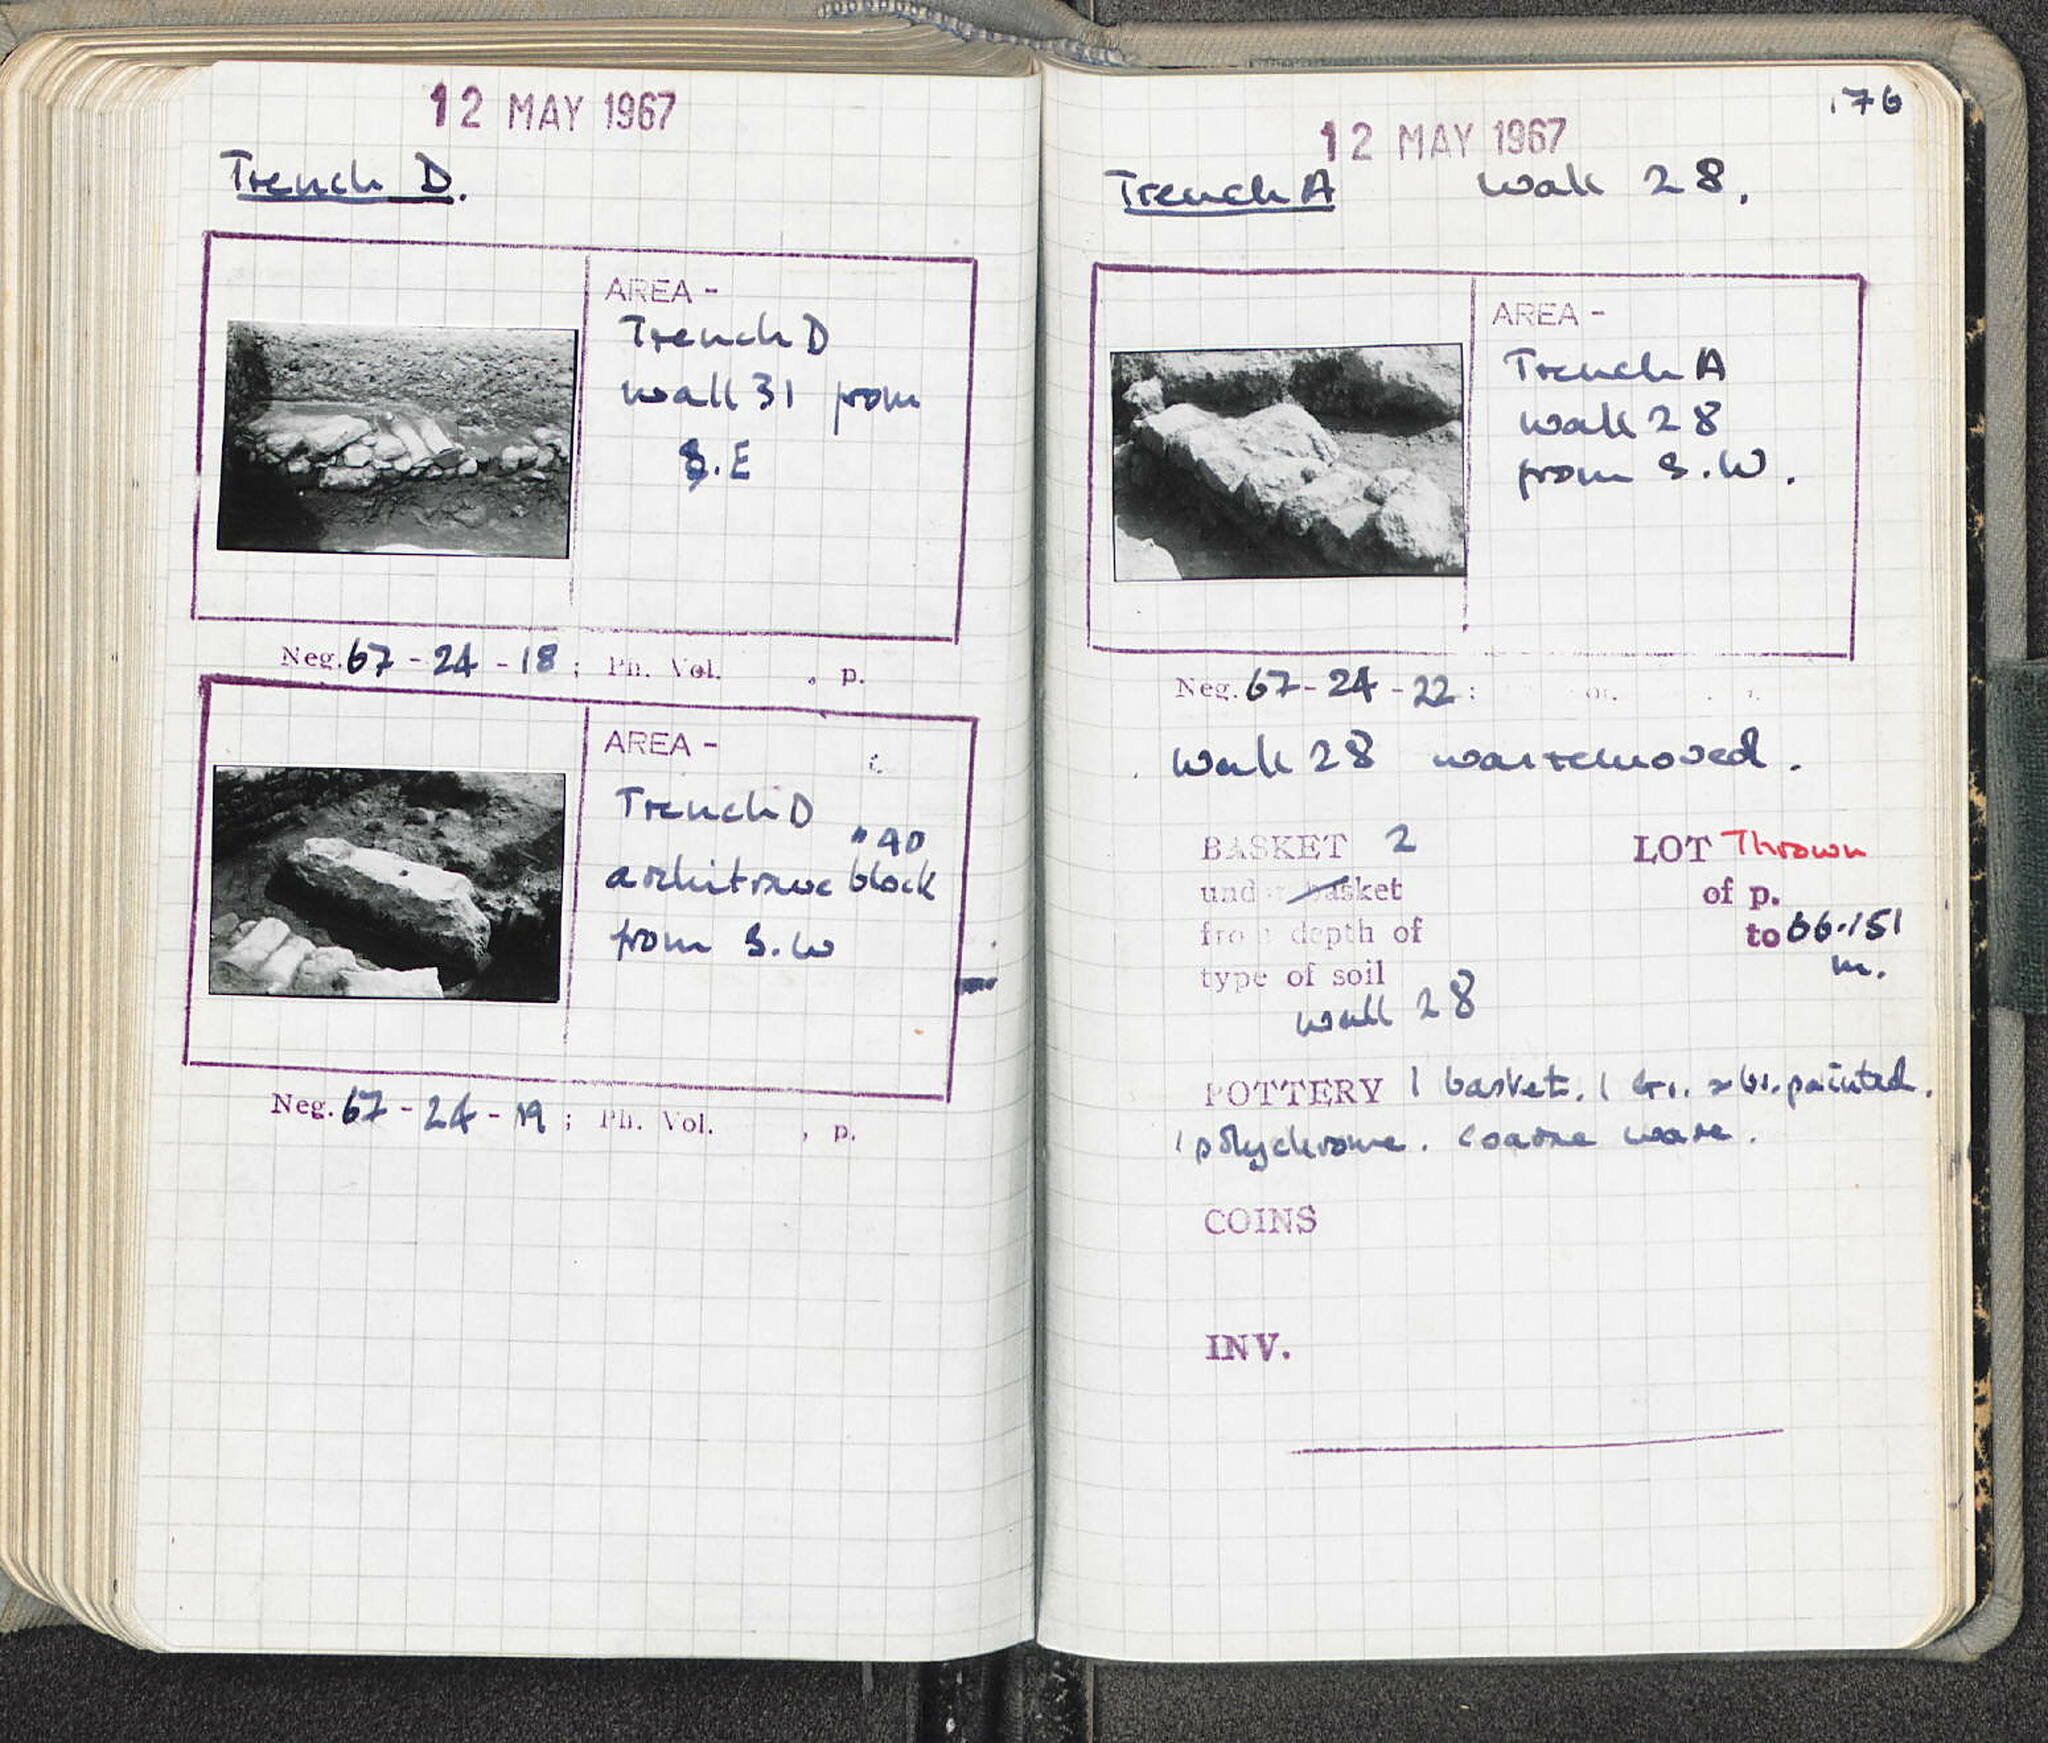 12 MAY 1967
Trench D.
AREA -
Trench D
wall 31 from
S.E
Neg. 67 - 24 - 18 ; Ph. Vol. , p.
AREA -
Trench D
"40
architrave block
from S.W
Neg. 67 - 24 - 19 ; Ph. Vol. , p.
176
12 MAY 1967
Trench A wall 28.
AREA -
Trench A
wall 28
from S.W.
Neg. 67 - 24 - 22 :
Wall 28 was removed.
BASKET 2 LOT Thrown
under basket of p.
from depth of to 66.151
type of soil m.
wall 28
POTTERY 1 basket. 1 br. painted.
1 polychrome. coarse ware.
COINS
INV.